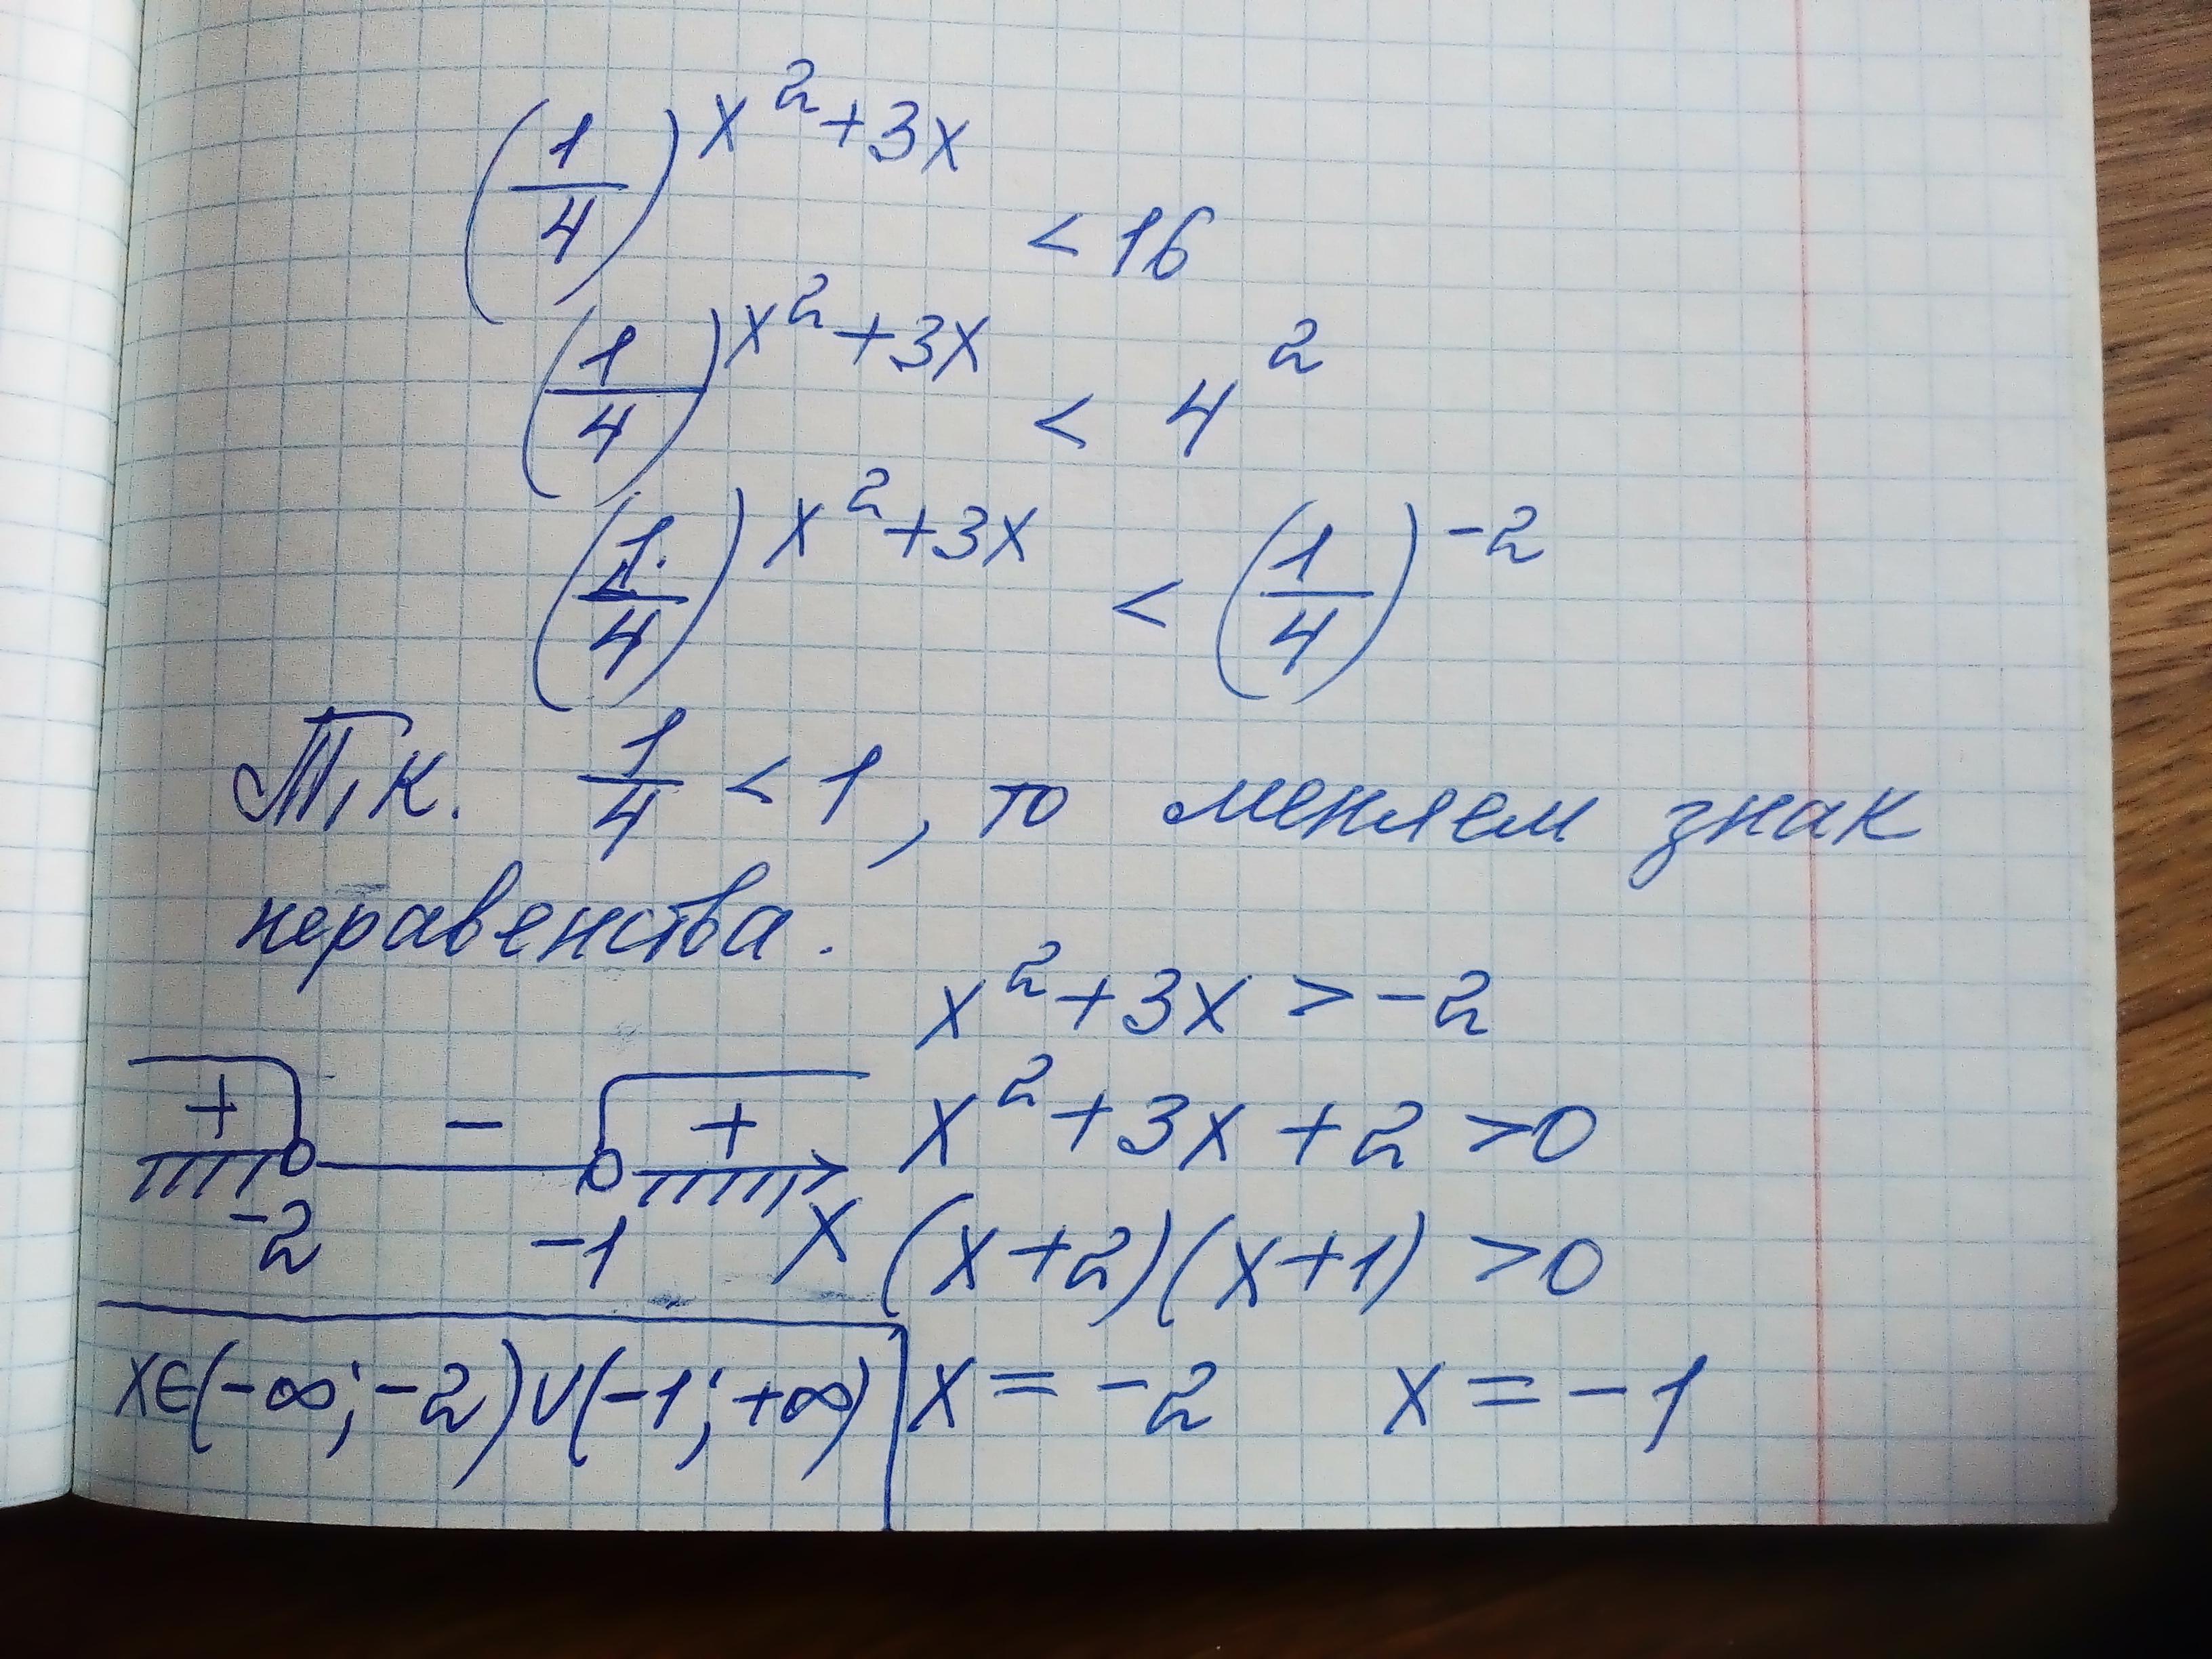 (1/4)^(x²+3x) < 16
(1/4)^(x²+3x) < 4²
(1/4)^(x²+3x) < (1/4)^(-2)
Т.к. 1/4 < 1, то меняем знак
неравенства.
x²+3x > -2
+ - + x²+3x+2 >0
-2 -1 x (x+2)(x+1) >0
x∈(-∞;-2)∪(-1;+∞) x = -2 x = -1